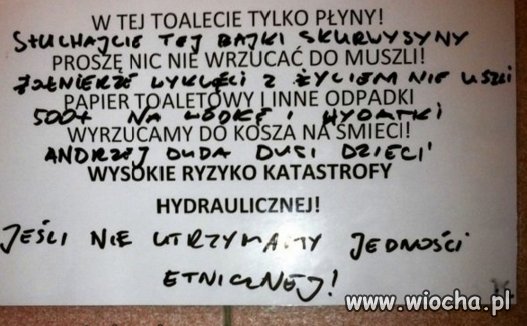 W TEJ TOALECIE TYLKO PŁYNY!
SŁUCHAJCIE TEJ BAJKI SKURWYSYNY
PROSZĘ NIC NIE WRZUCAĆ DO MUSZLI!
ŻOŁNIERZE WYKLĘCI Z ŻYCIEM NIE USZLI
PAPIER TOALETOWY I INNE ODPADKI
500+ NA WÓDKĘ I WYDATKI
WYRZUCAMY DO KOSZA NA ŚMIECI!
ANDRZEJ DUDA DUSI DZIECI
WYSOKIE RYZYKO KATASTROFY
HYDRAULICZNEJ!
JEŚLI NIE UTRZYMAMY JEDNOŚCI
ETNICZNEJ!
www.wiocha.pl